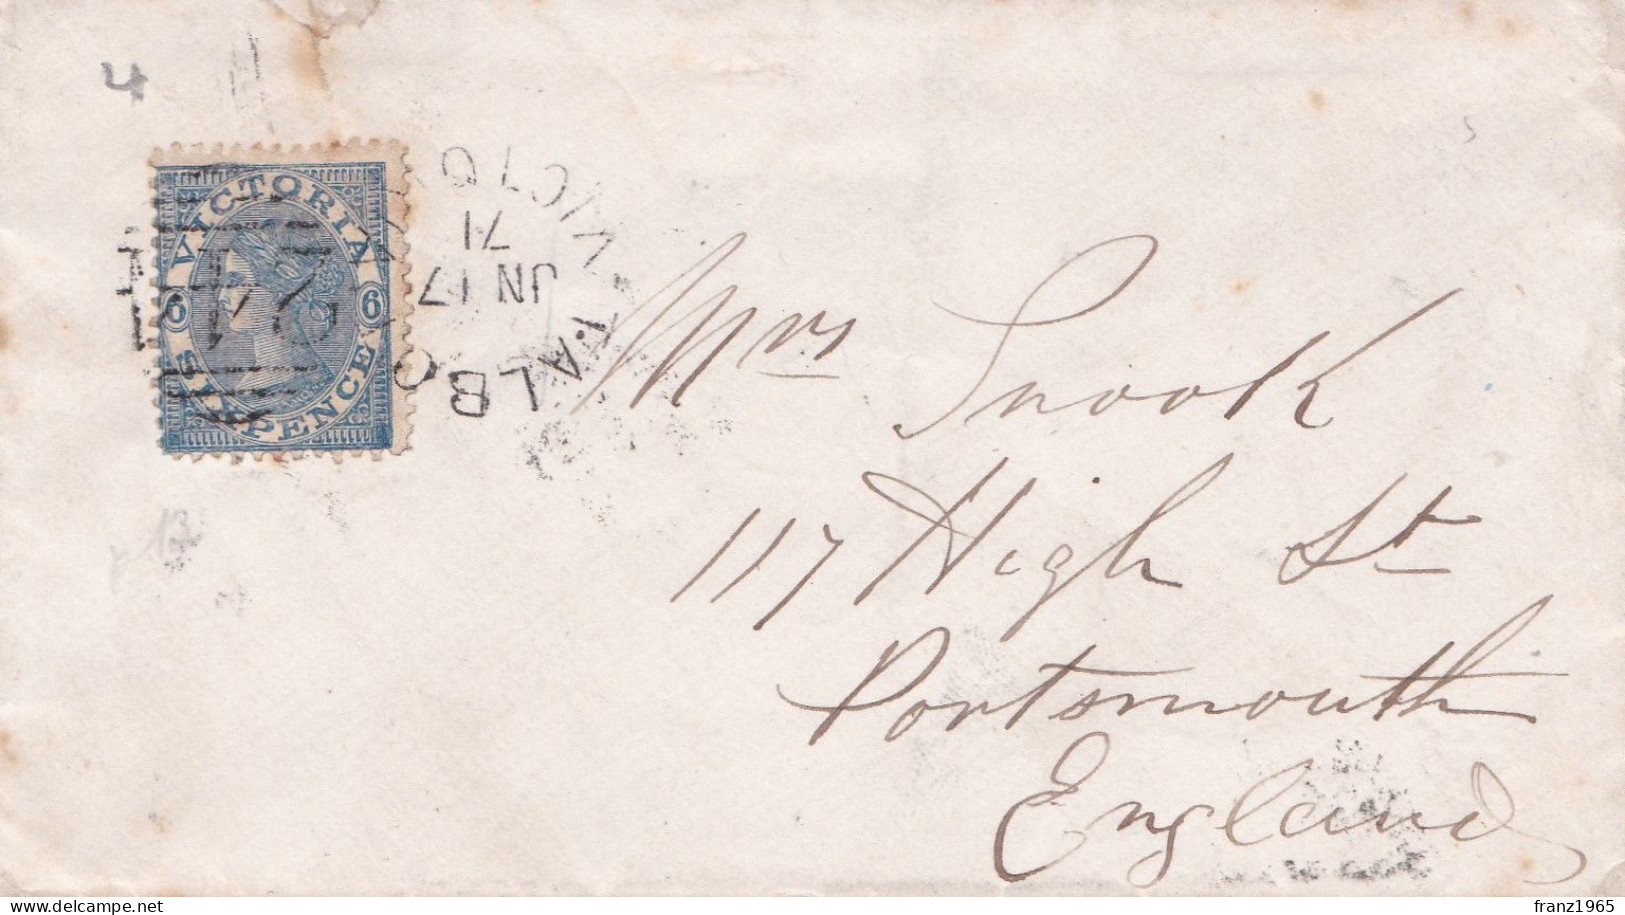 4
VICTORIA
6 6
SIXPENCE
VICTO
71
JN 17
T.ALB
Mrs Snook
117 High St
Portsmouth
England
delcampe.net
franz1965